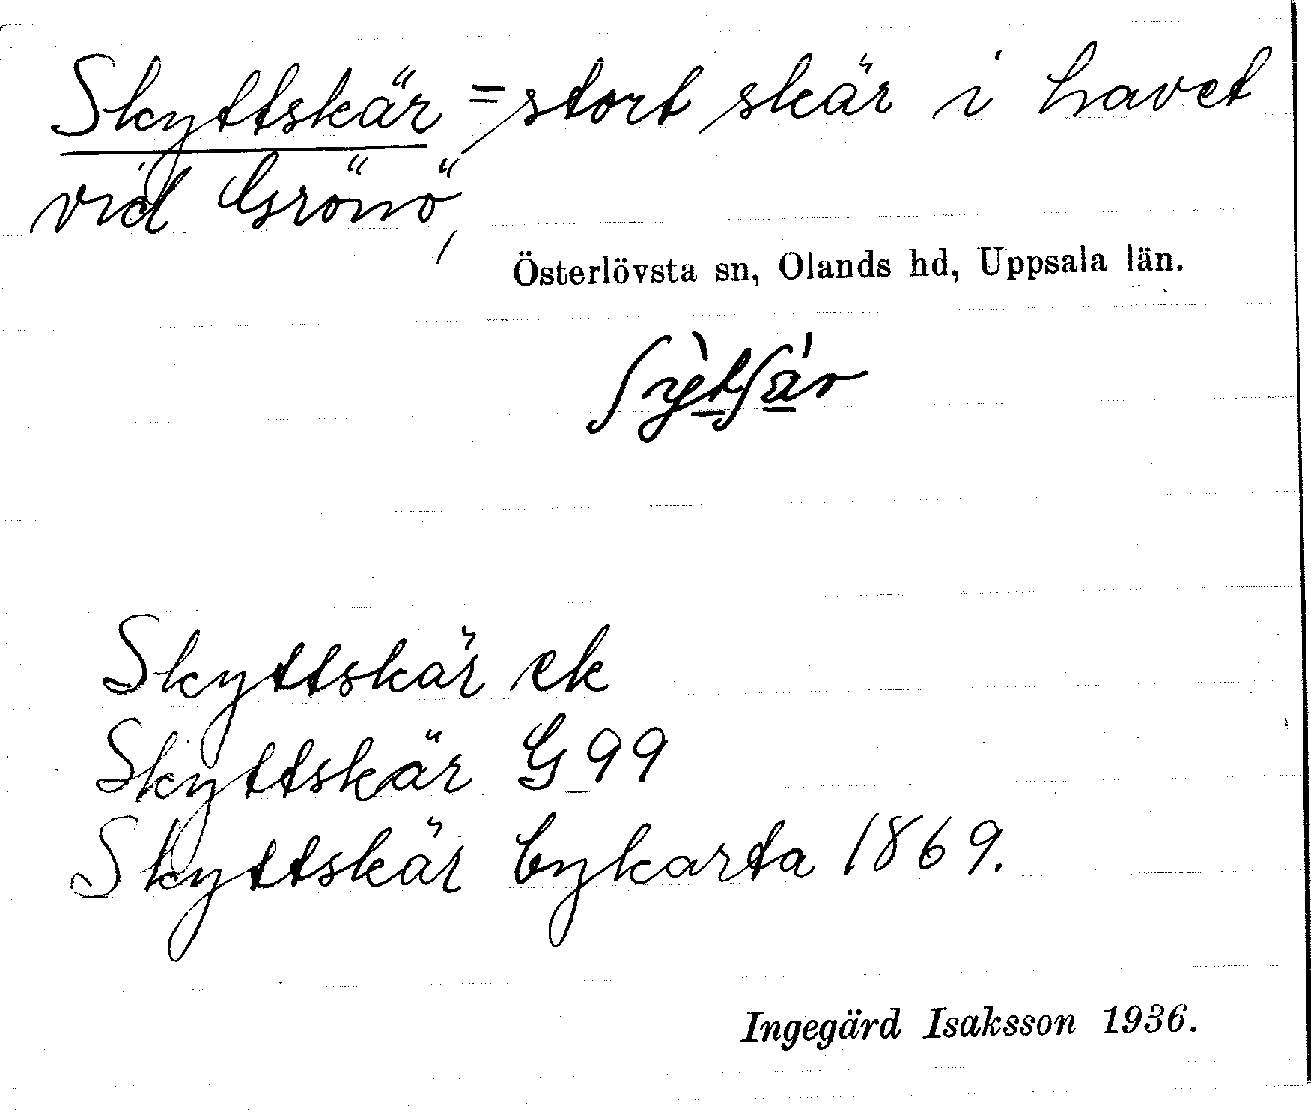 Skyttskär = stort skär i havet
vid Grönö,
Österlövsta sn, Olands hd, Uppsala län.
Skyttskär ek
Skyttskär G 99
Skyttskär bykarta 1869.
Ingegärd Isaksson 1936.